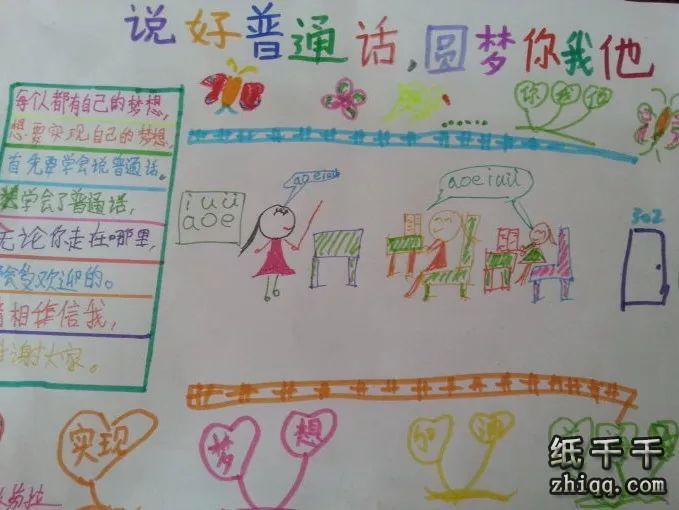 说好普通话,圆梦你我他
每个人都有自己的梦想,
想要实现自己的梦想,
首先要学会说普通话。
学会了普通话,
无论你走在哪里,
会受欢迎的。
请相信我,
谢谢大家。
你我他
i u ü
a o e
aoeiuü
aoeiuü
302
实现
梦想
纸千千
zhiqq.com